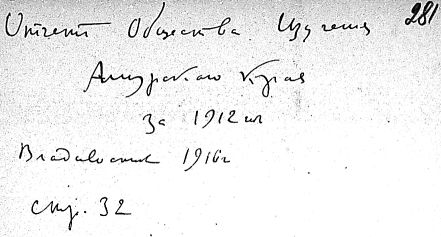 Отчет Общества Изучения 281
Амурского Края
за 1912 г
Владивосток 1916 г
стр. 32